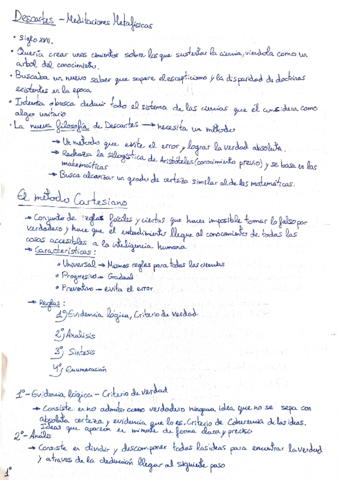 Descartes - Meditaciones Metafísicas
• Siglo XVII.
• Quería crear unos cimientos sobre los que sustentar la ciencia, viéndola como un
arbol del conocimiento.
• Buscaba un nuevo saber que supere el escepticismo y la disparidad de doctrinas
existentes en la época
• Intenta deducir todo el sistema de las ciencias que él considera como
algo unitario
• La nueva filosofía de Descartes → necesita un método:
→ Un método que evite el error, y lograr la verdad absoluta.
→ Rechaza la silogística de Aristóteles (conocimiento previo) y se basa en las
matemáticas
→ Busca alcanzar un grado de certeza similar al de las matemáticas.
El método Cartesiano
→ Conjunto de reglas fáciles y ciertas que hacen imposible tomar lo falso por
verdadero y hace que el entendimiento llegue al conocimiento de todas las
cosas accesibles a la inteligencia humana
→ Características:
• Universal → Mismas reglas para todas las ciencias
• Progresivo → Gradual
• Preventivo → evita el error
→ Reglas:
1º) Evidencia lógica, Criterio de verdad
2º) Analisis
3º) Síntesis
4º) Enumeración
1º - Evidencia lógica - Criterio de verdad
→ Consiste en no admitir como verdadero ninguna idea que no se sepa con
absoluta certeza y evidencia que lo es. Criterio de Coherencia de las ideas.
Ideas que aparecen en mi mente de forma clara y precisa
2º - Analis
→ Consiste en dividir y descomponer todas las ideas para encontrar la verdad
y a través de la deducción llegar al siguiente paso
1º